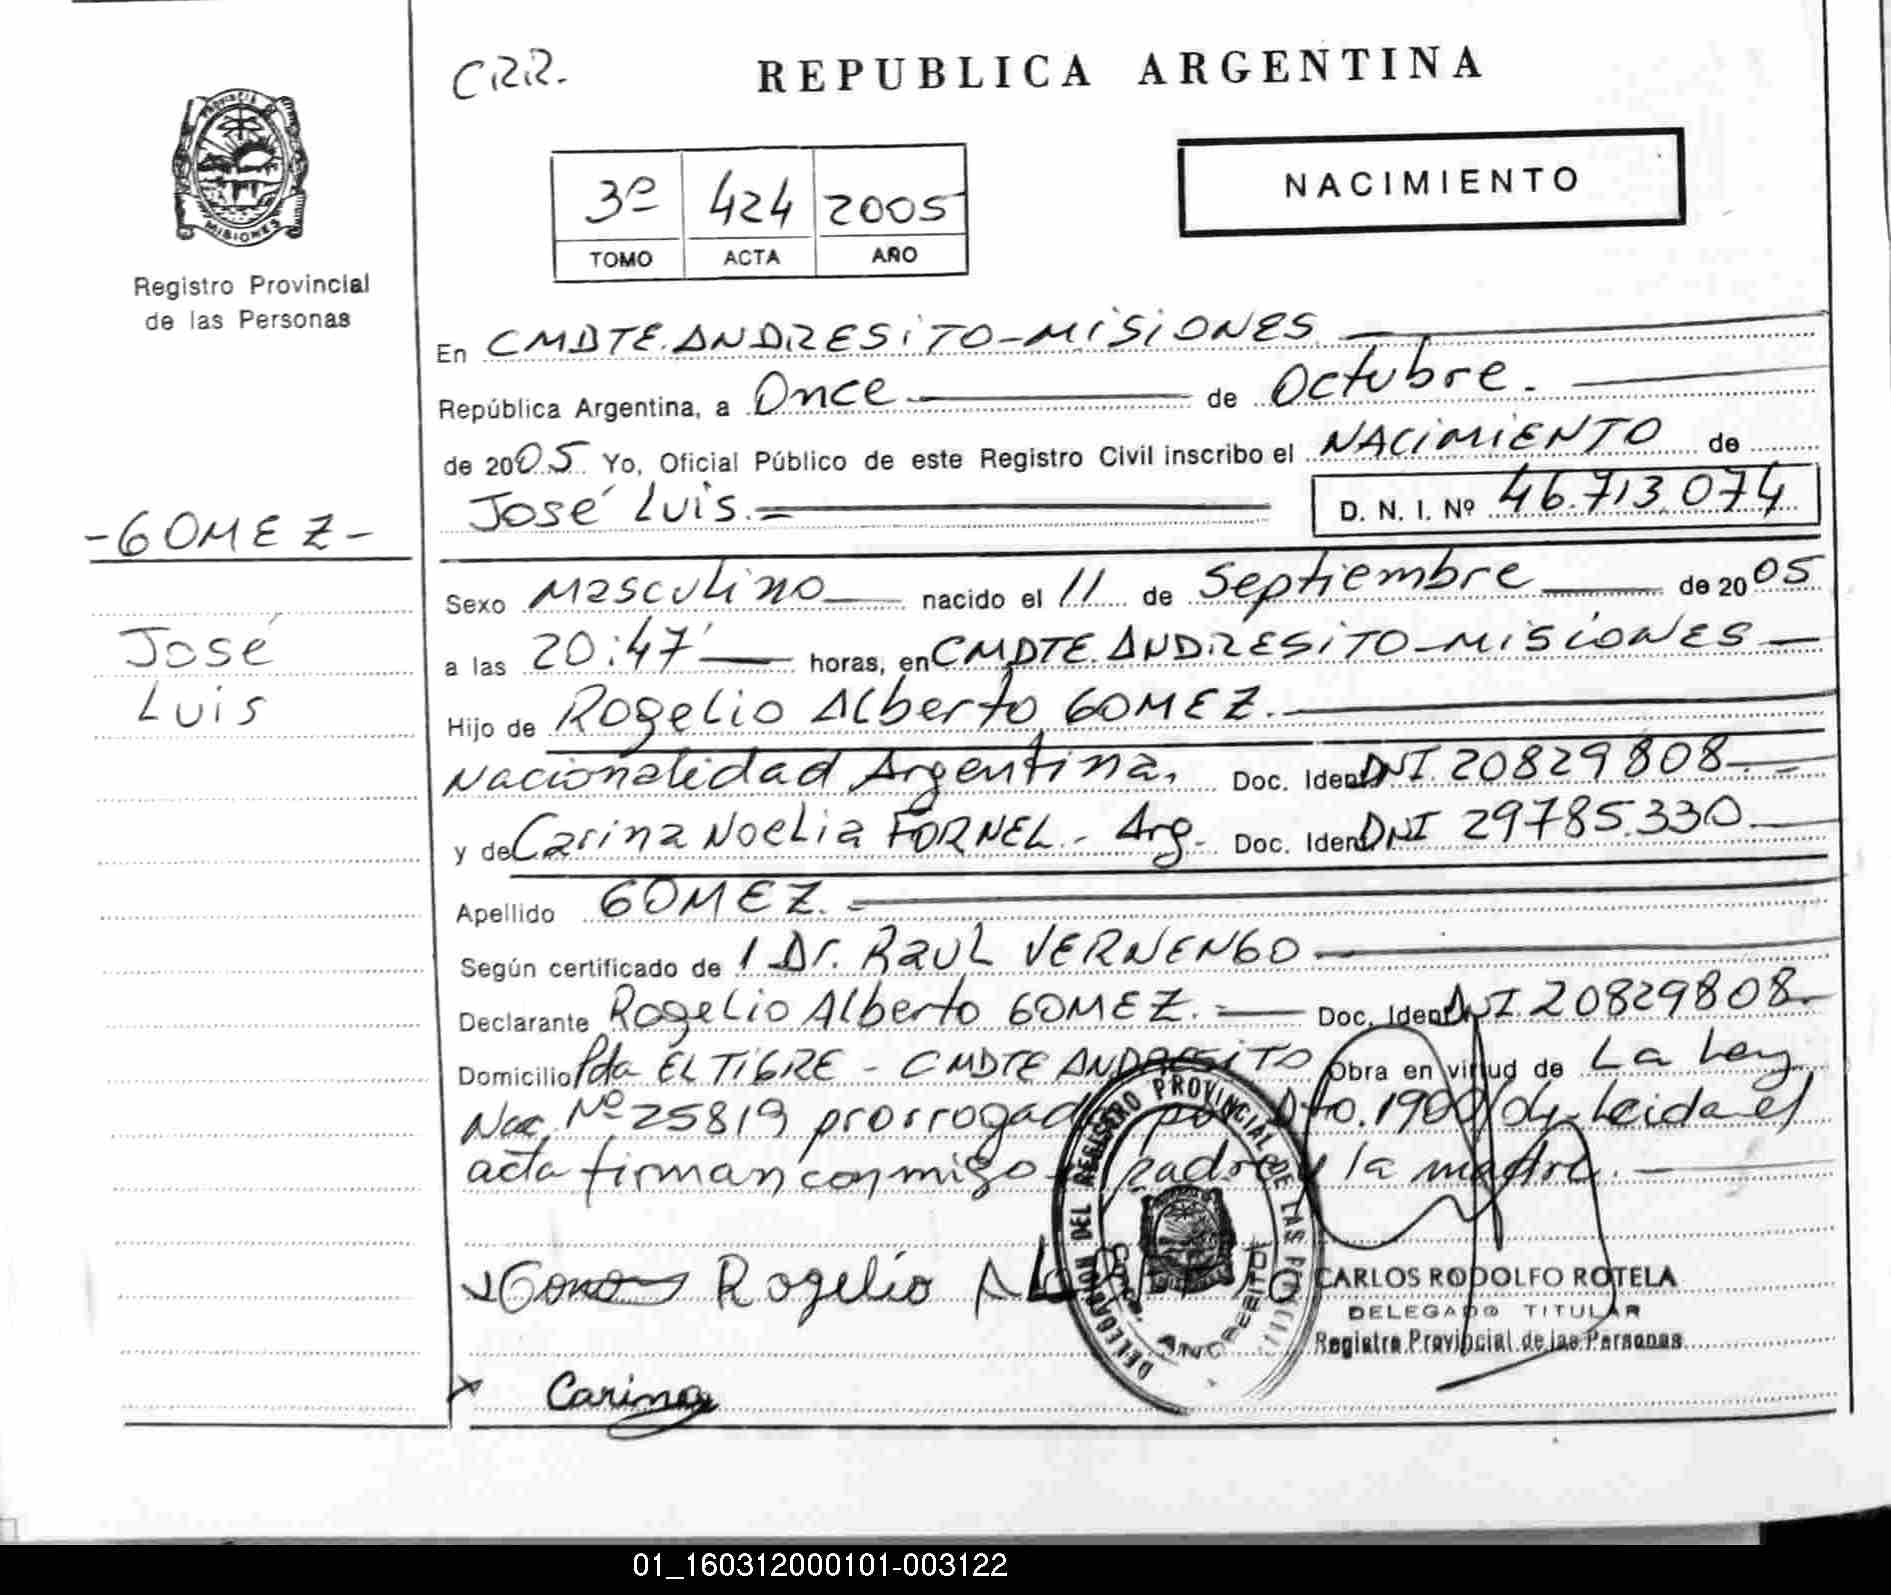 CRR.
REPUBLICA ARGENTINA
PROVINCIA DE
MISIONES
Registro Provincial
de las Personas
3º 424 2005
TOMO ACTA AÑO
NACIMIENTO
En CMDTE. ANDRESITO - MISIONES
República Argentina, a Once de Octubre.
de 2005 Yo, Oficial Público de este Registro Civil inscribo el NACIMIENTO de
José Luis. D. N. I. Nº 46.713.074
- GOMEZ -
José
Luis
Sexo Masculino nacido el 11 de Septiembre de 2005
a las 20:47' horas, en CMDTE. ANDRESITO - MISIONES
Hijo de Rogelio Alberto GOMEZ.
Nacionalidad Argentina. Doc. Ident. DNI 20829808.
y de Carina Noelia FORNEL - Arg. Doc. Ident. DNI 29785.330
Apellido GOMEZ.
Según certificado de 1 Dr. Raul VERNENGO
Declarante Rogelio Alberto GOMEZ. Doc. Ident. DNI 20829808.
Domicilio Pda EL TIGRE - CMDTE ANDRESITO Obra en virtud de La Ley
Nac. Nº 25819 prorrogada por Dto. 1900/04 - Leida el
acta firman conmigo el padre y la madre.
Rogelio
DELEGACION DEL REGISTRO PROVINCIAL DE LAS
CARLOS RODOLFO ROTELA
DELEGADO TITULAR
Registro Provincial de las Personas
x Carina
01_160312000101-003122